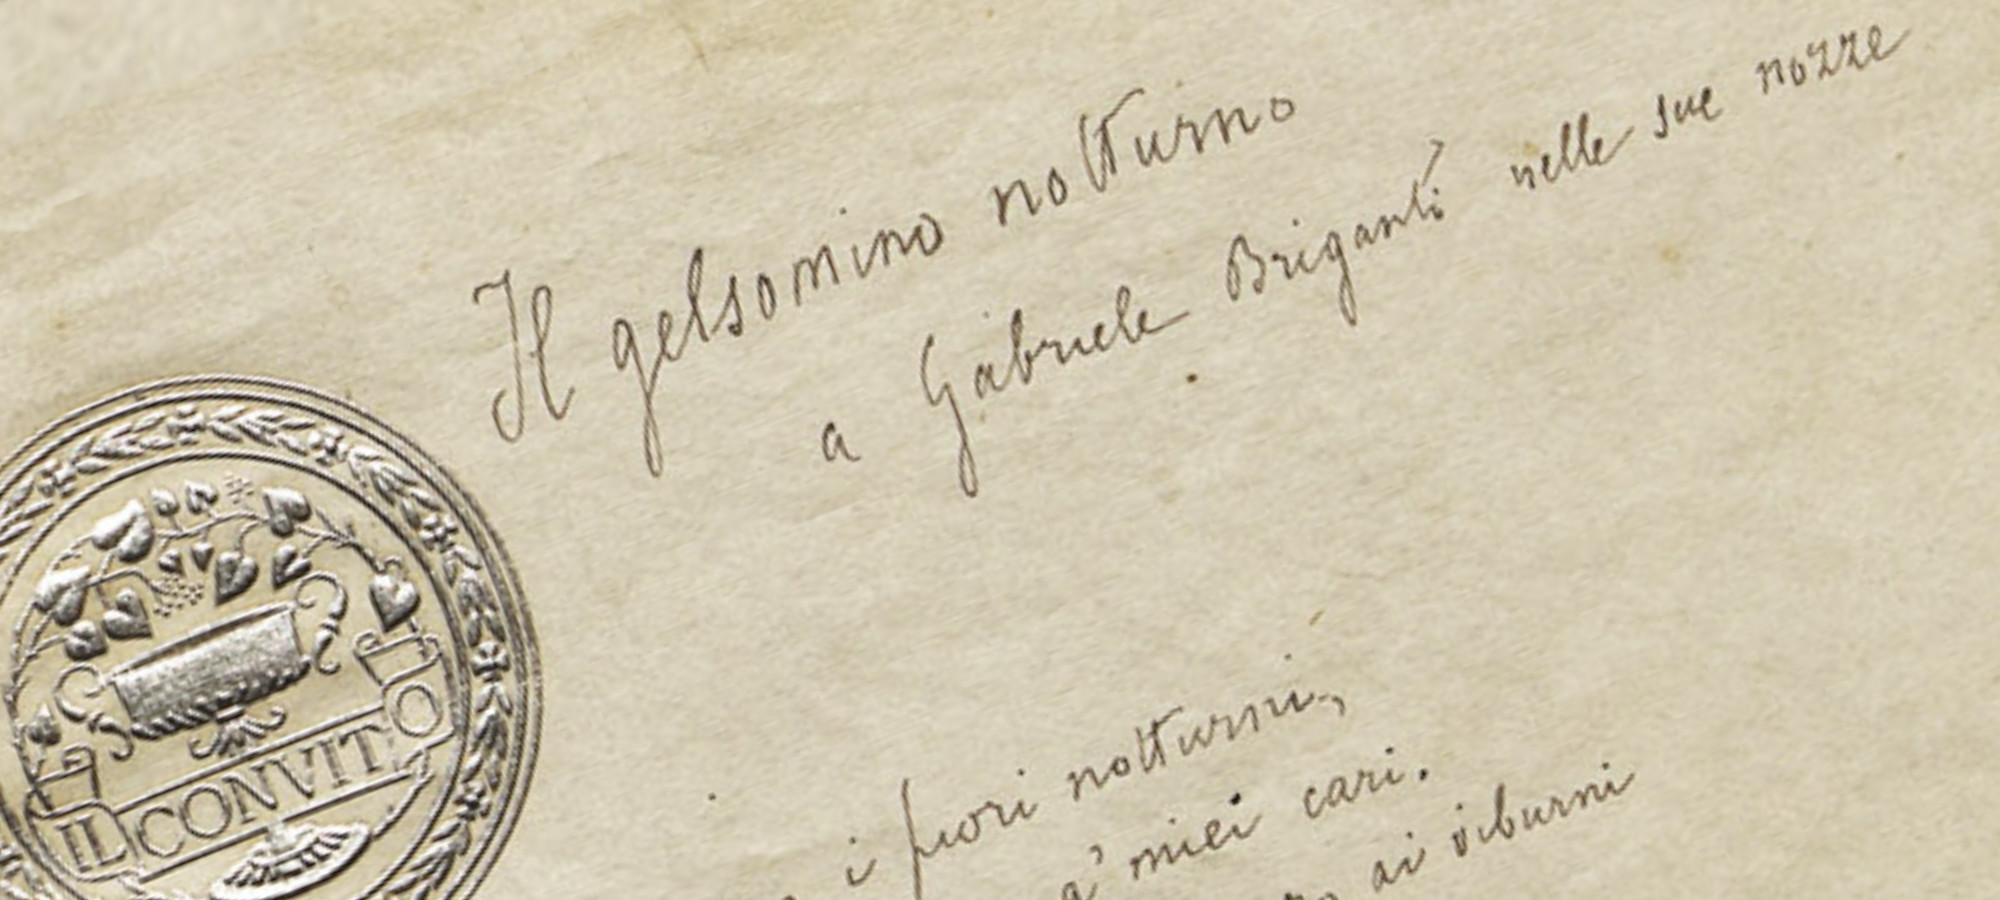 Il gelsomino notturno
a Gabriele Briganti nelle sue nozze
i fiori notturni,
a' miei cari.
ai viburni
IL CONVITO